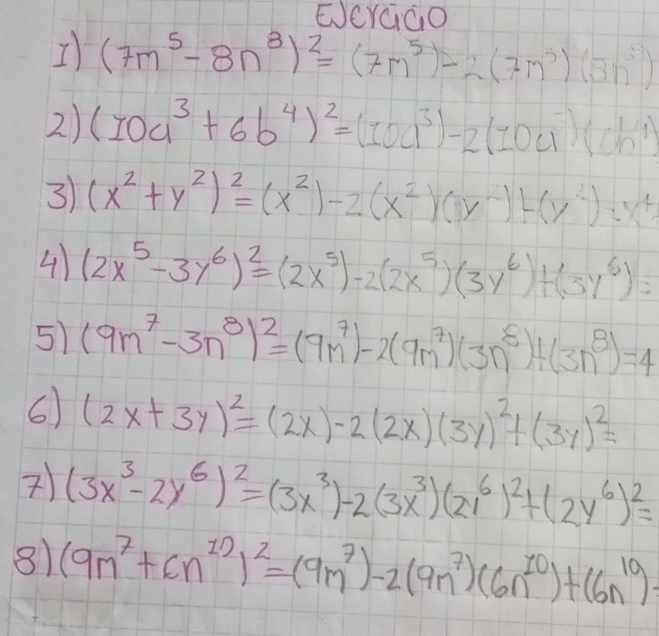 Ejercicio
1) (7m⁵ - 8n⁸)² = (7m⁵) - 2(7m⁵)(8n⁸)
2) (10a³ + 6b⁴)² = (10a³) - 2(10a
3) (x² + y²)² = (x²) - 2(x²)(y²) + (y²)
4) (2x⁵ - 3y⁶)² = (2x⁵) - 2(2x⁵)(3y⁶) + (3y⁶) =
5) (9m⁷ - 3n⁸)² = (9m⁷) - 2(9m⁷)(3n⁸) + (3n⁸) = 4
6) (2x + 3y)² = (2x) - 2(2x)(3y)² + (3y)² =
7) (3x³ - 2y⁶)² = (3x³) - 2(3x³)(2y⁶)² + (2y⁶)² =
8) (9m⁷ + 6n¹⁰)² = (9m⁷) - 2(9m⁷)(6n¹⁰) + (6n¹⁰)